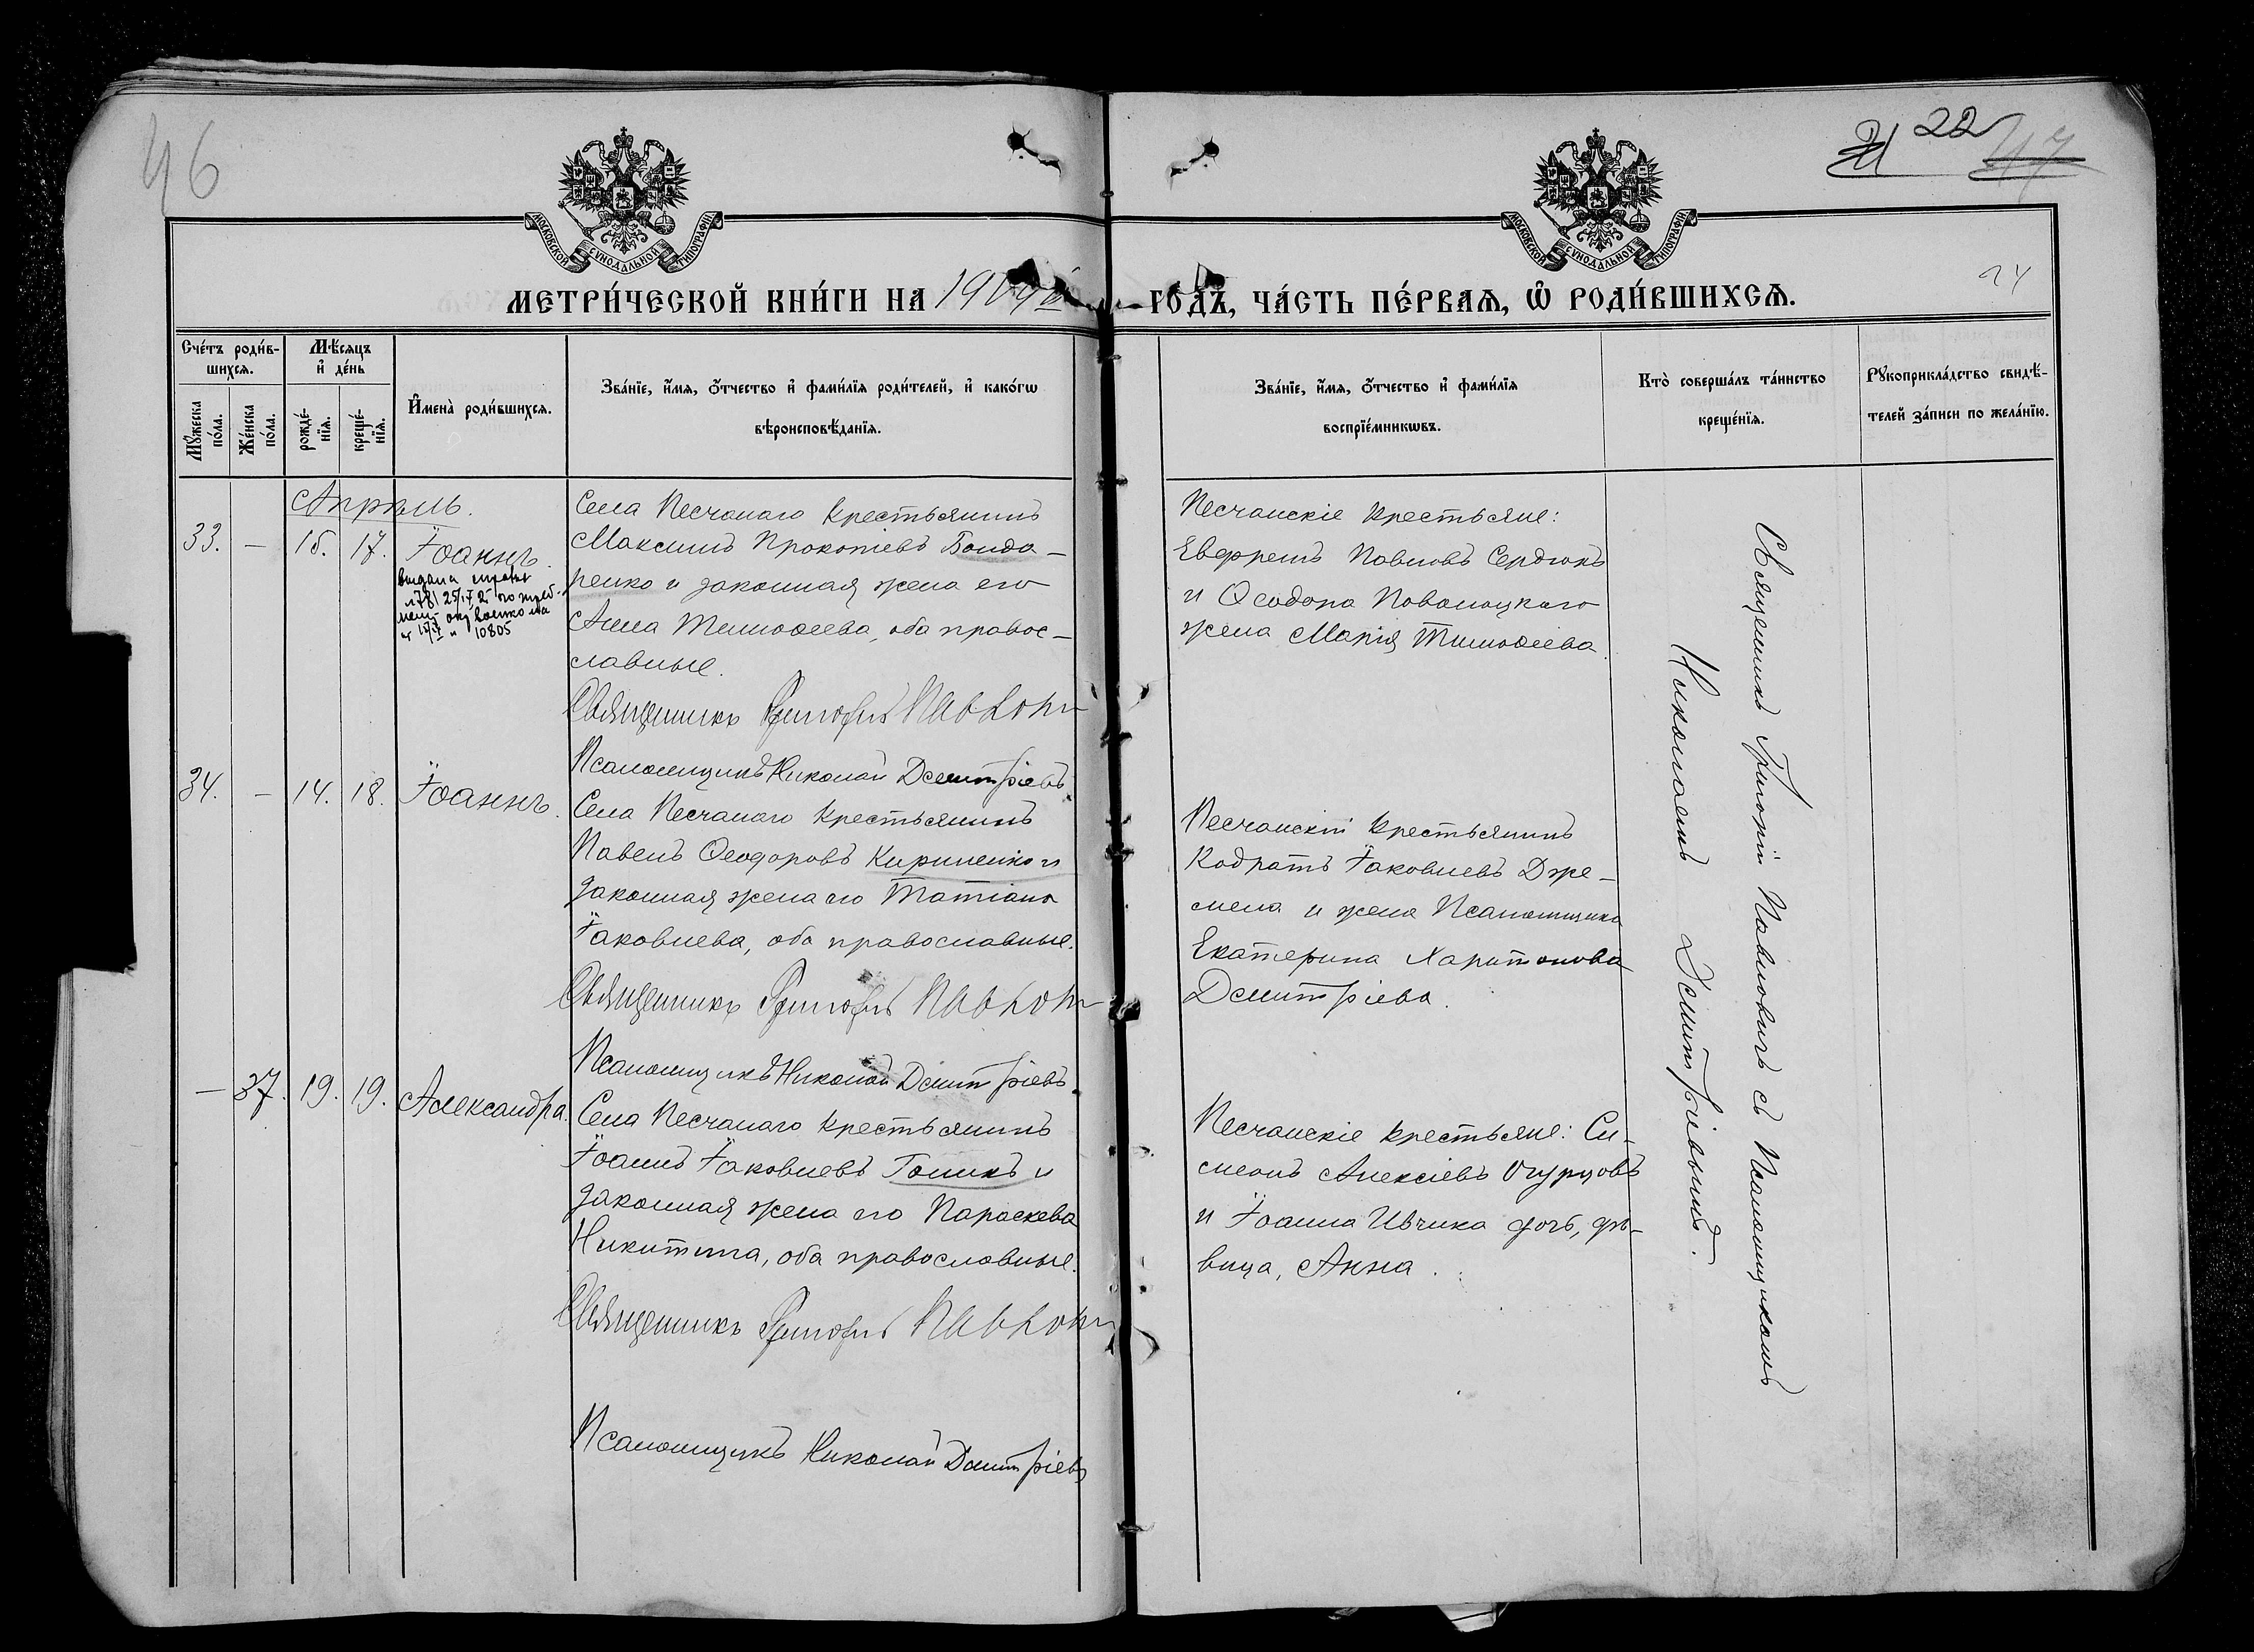 46
22
47
24
МОСКОВСКОЙ СѴНОДАЛЬНОЙ ТИПОГРАФІИ
МОСКОВСКОЙ СѴНОДАЛЬНОЙ ТИПОГРАФІИ
МЕТРИ́ЧЕСКОЙ КНИ́ГИ НА 190
ГОДЪ, ЧА́СТЬ ПЕ́РВАЯ, Ѡ҆ РОДИ́ВШИХСЯ.
Сче́тъ роди́в-
шихся.
Мꙋ́жеска
по́ла.
Же́нска
по́ла.
Мѣ́сяцъ
и҆ де́нь
рожде́-
нїя.
креще́-
нїя.
И҆мена̀ роди́вшихся.
Зва́нїе, и҆́мя, ѻ҆́тчество и҆ фами́лїя роди́телей, и҆ како́гѡ
вѣроисповѣ́данїя.
Зва́нїе, и҆́мя, ѻ҆́тчество и҆ фами́лїя
воспрїе́мникѡвъ.
Кто̀ соверша́лъ та́инство
креще́нїя.
Рꙋкоприкла́дство свидѣ́-
телей за́писи по жела́нїю.
Апрѣль.
33. — 15. 17. Іоаннъ.
выдана
781 25/
10805
Села Песчанаго крестьянинъ
Максимъ Прокопіевъ Бонда-
ренко и законная жена его
Анна Тимофеева, оба правос-
славные.
Священникъ Григорій Павлович
Псаломщикъ Николай Дмитріевъ
Песчанскіе крестьяне:
Евфремъ Павловъ Сердюкъ
и Ѳеодора Поволоцкаго
жена Марія Тимофеева.
34. — 14. 18. Іоаннъ.
Села Песчанаго крестьянинъ
Павелъ Ѳеодоровъ Кириленко и
законная жена его Татіана
Іаковлева, оба православные.
Священникъ Григорій Павлович
Псаломщикъ Николай Дмитріевъ
Песчанскій крестьянинъ
Кодратъ Іаковлевъ Дже-
мела и жена Псаломщика
Екатерина Харитонова
Дмитріева.
— 37. 19. 19. Александра.
Села Песчанаго крестьянинъ
Іоаннъ Іаковлевъ Гоникъ и
законная жена его Параскева
Никитина, оба православные.
Священникъ Григорій Павлович
Псаломщикъ Николай Дмитріевъ
Песчанскіе крестьяне: Си-
меонъ Алексіевъ Огурцовъ
и Іоанна Ивчика дочь, дѣ-
вица, Анна.
Священникъ Григорій Павловичъ съ Псаломщикомъ
Николаемъ Дмитріевымъ.